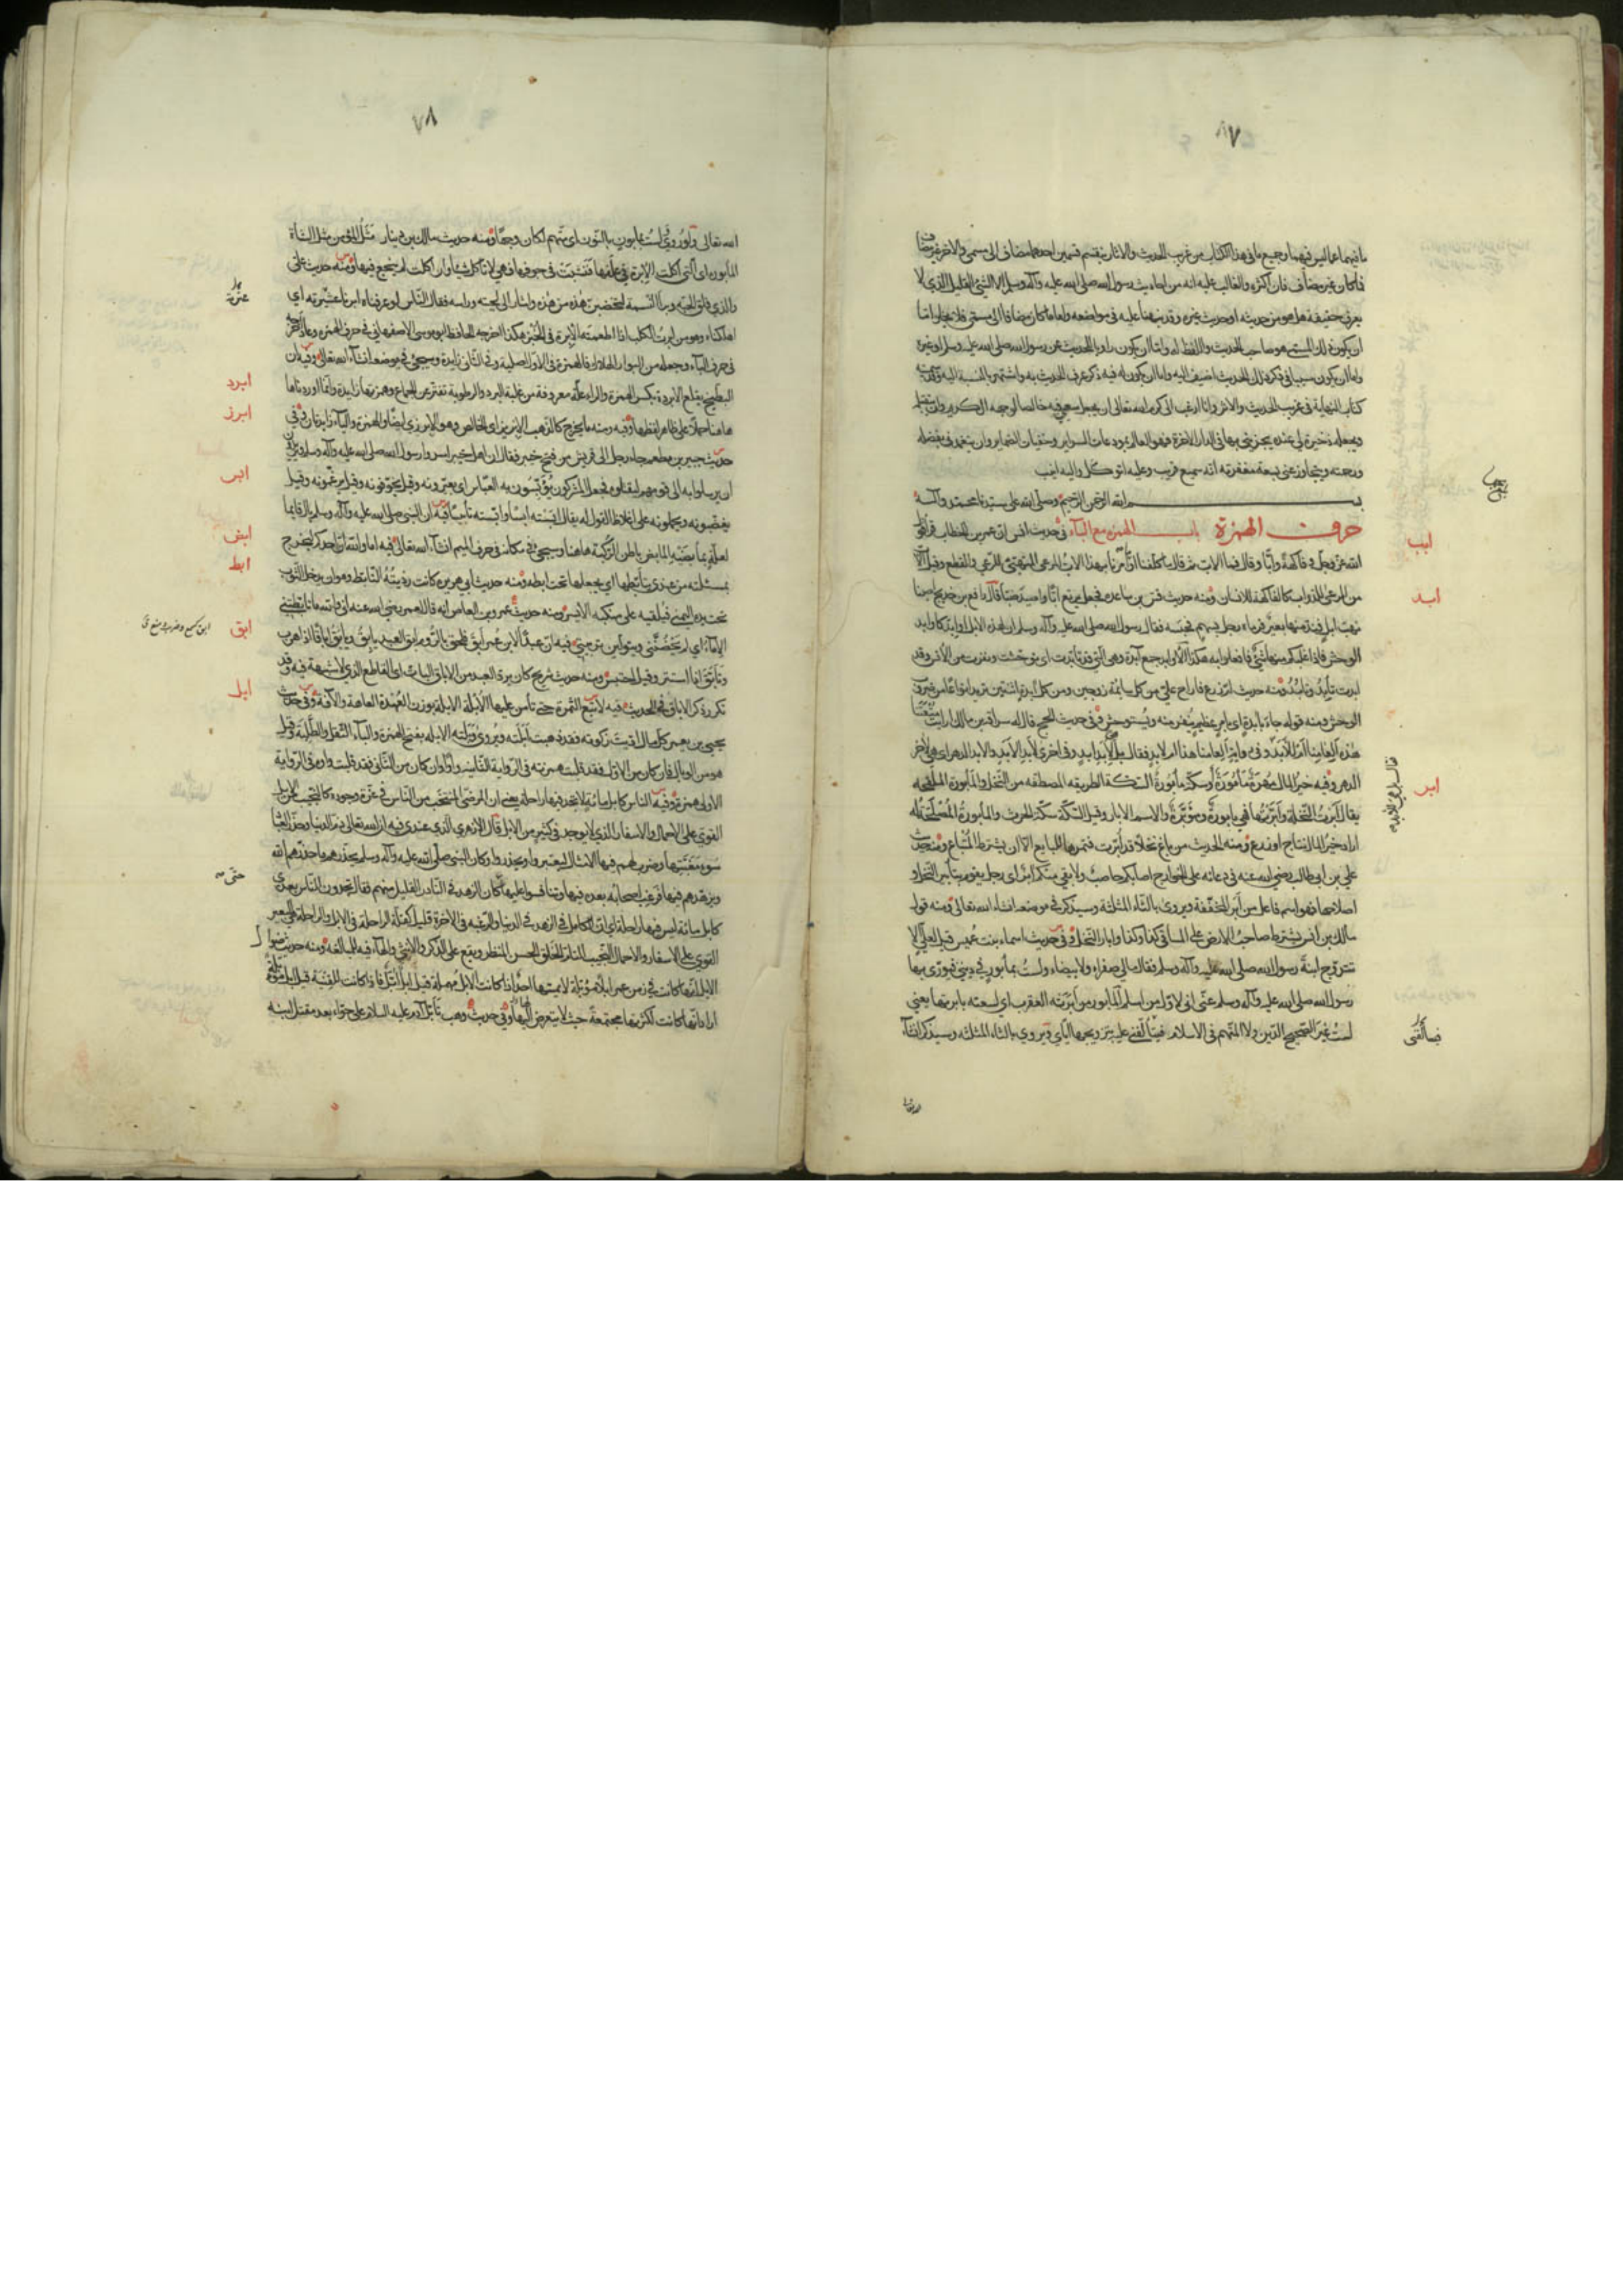 ٧
ما فيهما عما ليس فيهما وجميع ما في هذا الكتاب من غريب الحديث والاثار ينقسم قسمين احدهما مضاف الى مسمى والاخر غير مضاف
فما كان غير مضاف فان اكثره والغالب عليه انه من احاديث رسول الله صلى الله عليه وآله وسلم الا الشئ القليل الذي لا
يعرف حقيقته هل هو من حديثه او حديث غيره وقد نبهنا عليه في مواضعه واما ما كان مضافا الى مسمى فلا يخلو اما
ان يكون ذلك المسمى هو صاحب الحديث واللفظ له واما ان يكون راويا للحديث عن رسول الله صلى الله عليه وسلم او غيره
واما ان يكون سببا في ذكر ذلك الحديث اضيف اليه واما ان يكون له فيه ذكر عرف الحديث به واشتهر بالنسبة اليه وقد سميته
كتاب النهاية في غريب الحديث والاثر وانا ارغب الى كرم الله تعالى ان يجعل سعيي فيه خالصا لوجهه الكريم وان يتقبله
ويجعله ذخيرة لي عنده يجزيني بها في الدار الاخرة فهو العالم بمودعات السراير وخفيات الضماير وان يتغمدني بفضله
ورحمته ويتجاوز عني بسعة مغفرته انه سميع قريب وعليه اتوكل واليه انيب
بسم الله الرحمن الرحيم وصلى الله على سيدنا محمد وآله
حرف الهمزة باب الهمزة مع الباء في حديث انس ان عمر بن الخطاب قرأ قول
ابب
الله عز وجل وفاكهة وابًّا وقال فما الاب ثم قال ما كلفنا او ما امرنا بهذا الاب المرعى المتهيئ للرعي والقطع وقيل الاب
من المرعى للدواب كالفاكهة للانسان ومنه حديث قس بن ساعدة فجعل يرتع ابًّا واصيد ضبًّا قال رافع بن خديج اصبنا
ابد
نهب ابل فند منها بعير فرماه رجل بسهم فحبسه فقال رسول الله صلى الله عليه وآله وسلم ان لهذه الابل اوابد كاوابد
الوحش فاذا غلبكم منها شئ فافعلوا به هكذا الاوابد جمع آبدة وهي التي قد تأبدت اي توحشت ونفرت من الانس وقد
ابدت تأبد وتأبُد ومنه حديث ام زرع فاراح علي من كل سائمة زوجين ومن كل آبدة اثنتين تريد انواعا من ضروب
الوحش ومنه قوله جاء بآبدة اي بامر عظيم ينفر منه ويستوحش وفي حديث الحج قال له سراقة بن مالك ارايت متعتنا
هذه ألعامنا ام للابد وفي رواية ألعامنا هذا ام لابد فقال بل لابد ابد وفي اخرى لابد الابد والابد الدهر اي هي لاخر
الدهر وفيه خير المال مهرة مأمورة وسكة مأبورة السكة الطريقه المصطفه من النخل والمأبورة الملقحه
ابر
يقال ابرت النخلة وابّرتها فهي مابورة ومؤبّرة والاسم الابار وقيل السكة سكة الحرث والمأبورة المصلحة له
اراد خير المال نتاج او زرع ومنه الحديث من باع نخلا قد ابّرت فثمرها للبايع الا ان يشترط المبتاع ومنه حديث
علي بن ابي طالب رضي الله عنه في دعائه على الخوارج اصابكم حاصب ولا بقي منكم آبر اي رجل يقوم بتأبير النخل و
اصلاحها فهو اسم فاعل من ابر المخففة ويروى بالثاء المثلثة وسيذكر في موضعه انشاء الله تعالى ومنه قول
مالك بن انس يشترط صاحب الارض على المساقي كذا وكذا وابار النخل وفي حديث اسماء بنت عميس قيل لعلي الا
تتزوج ابنة رسول الله صلى الله عليه وآله وسلم فقال مالي صفراء ولا بيضاء ولست بمأبور في ديني فيوري بها
رسول الله صلى الله عليه وآله وسلم عني اني لاول من اسلم المأبور من ابرته العقرب اي لسعته بابرتها يعني
لست غير الصحيح الدين ولا المتهم في الاسلام ويروى بالثاء المثلثه وسيذكر انشاء
٧٨
الله تعالى ولو روي لست بمأبون بالنون اي متهم لكان وجها ومنه حديث مالك بن دينار مثل المؤمن مثل الشاة
المأبورة اي التي اكلت الابرة في علفها فنشبت في جوفها فهي لا تأكل شيئا وان اكلت لم ينجع فيها ومنه حديث علي
والذي فلق الحبة وبرأ النسمة لتخضبن هذه من هذه واشار الى لحيته ورأسه فقال الناس لو عرفناه ابرنا عترته اي
اهلكناه وهو من ابرت الكلب اذا اطعمته الابرة في الخبز هكذا اخرجه الحافظ ابو موسى الاصفهاني في حرف الهمزة وعاد فاخرجه
في حرف الباء وجعله من البوار الهلاك فالهمزة في الاول اصلية وفي الثاني زايدة وسيجئ في موضعه انشاء الله تعالى وفيه ان
ابرد
البطيخ يقلع الابردة بكسر الهمزة والراء علة معروفة من غلبة البرد والرطوبة تفتر عن الجماع وهمزتها زايدة وانما اوردناها
ابرز
هاهنا حملا على ظاهر لفظها وفيه ومنه ما يخرج كالذهب الابريز اي الخالص وهو الابريزي ايضا والهمزة والياء زايدتان وفي
حديث جبير بن مطعم جاء رجل الى قريش من فتح خيبر فقال ان اهل خيبر اسروا رسول الله صلى الله عليه وآله وسلم ويريدون
ابس
ان يرسلوا به الى قومهم ليقتلوه فجعل المشركون يؤبسون به العباس اي يعيرونه وقيل يخوفونه وقيل يرغمونه وقيل
يغضبونه ويحملونه على اغلاظ القول له يقال ابسته ابسا وابسته تأبيسا فيه ان النبي صلى الله عليه وآله وسلم بال قايما
ابض
لعلة بمأبضيه المأبض باطن الركبة هاهنا وسيجئ في مكانه في حرف الميم انشاء الله تعالى فيه اما والله ان احدكم ليخرج
ابط
بمسئلته من عندي يتأبطها اي يجعلها تحت ابطه ومنه حديث ابي هريرة كانت رديته التأبط وهو ان يدخل الثوب
تحت يده اليمنى فيلقيه على منكبه الايسر ومنه حديث عمرو بن العاص انه قال لعمر رضي الله عنه اني والله ما تأبطتني
ابق
الاماء اي لم يحضنني ويتولين تربيتي فيه ان عبدا لابن عمر ابق فلحق بالروم ابق العبد يابق ويابق اباقا اذا هرب
وتأبق اذا استتر وقيل احتبس ومنه حديث شريح كان يرد العبد من الاباق البات اي القاطع الذي لا شبهة فيه وقد
ابل
تكرر ذكر الاباق في الحديث فيه لا تبع الثمرة حتى تأمن عليها الابلة الابلة بوزن العهدة العاهة والآفة وفي حديث
يحيى بن يعمر كل مال اديت زكوته فقد ذهبت ابلته ويروى وبلته الابلة بفتح الهمزة والباء الثقل والطلبة وقيل
هو من الوبال فان كان من الاول فقد قلبت همزته في الرواية الثانية واوا وان كان من الثاني فقد قلبت واوه في الرواية
الاولى همزة وفيه الناس كابل مائة لا تجد فيها راحلة يعني ان المرضي المنتخب من الناس في عزة وجوده كالنجيب من الابل
القوي على الاحمال والاسفار الذي لا يوجد في كثير من الابل قال الازهري الذي عندي فيه ان الله تعالى ذم الدنيا وحذر العباد
سوء مغبتها وضرب لهم فيها الامثال ليعتبروا ويحذروا وكان النبي صلى الله عليه وآله وسلم يحذرهم ما حذرهم الله
ويزهدهم فيها فرغب اصحابه بعده فيها وتنافسوا عليها حتى كان الزهد في النادر القليل منهم فقال تجدون الناس بعدي
كابل مائة ليس فيها راحلة اي ان الكامل في الزهد في الدنيا والرغبة في الاخرة قليل كقلة الراحلة في الابل والراحلة هي البعير
القوي على الاسفار والاحمال النجيب التام الخلق الحسن المنظر ويقع على الذكر والانثى والهاء فيه للمبالغة ومنه حديث ضوال
الابل انها كانت في زمن عمر ابلا مؤبلة لا يمسها احد اذا كانت الابل مهملة قيل ابل ابّل فاذا كانت للقنية قيل ابل مؤبلة
اراد انها كانت لكثرتها مجتمعة حيث لا يتعرض اليها وفي حديث وهب تأبل آدم عليه السلام على حواء بعد مقتل ابنه